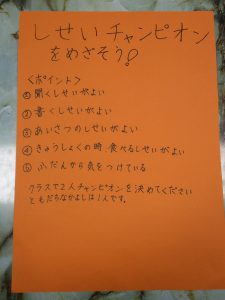 しせいチャンピオン
をめざそう!
<ポイント>
① 聞くしせいがよい
② 書くしせいがよい
③ あいさつのしせいがよい
④ きゅうしょくの時、食べるしせいがよい
⑤ ふだんから気をつけている
クラスで2人チャンピオンを決めてください
ともだちなかよしは1人です。